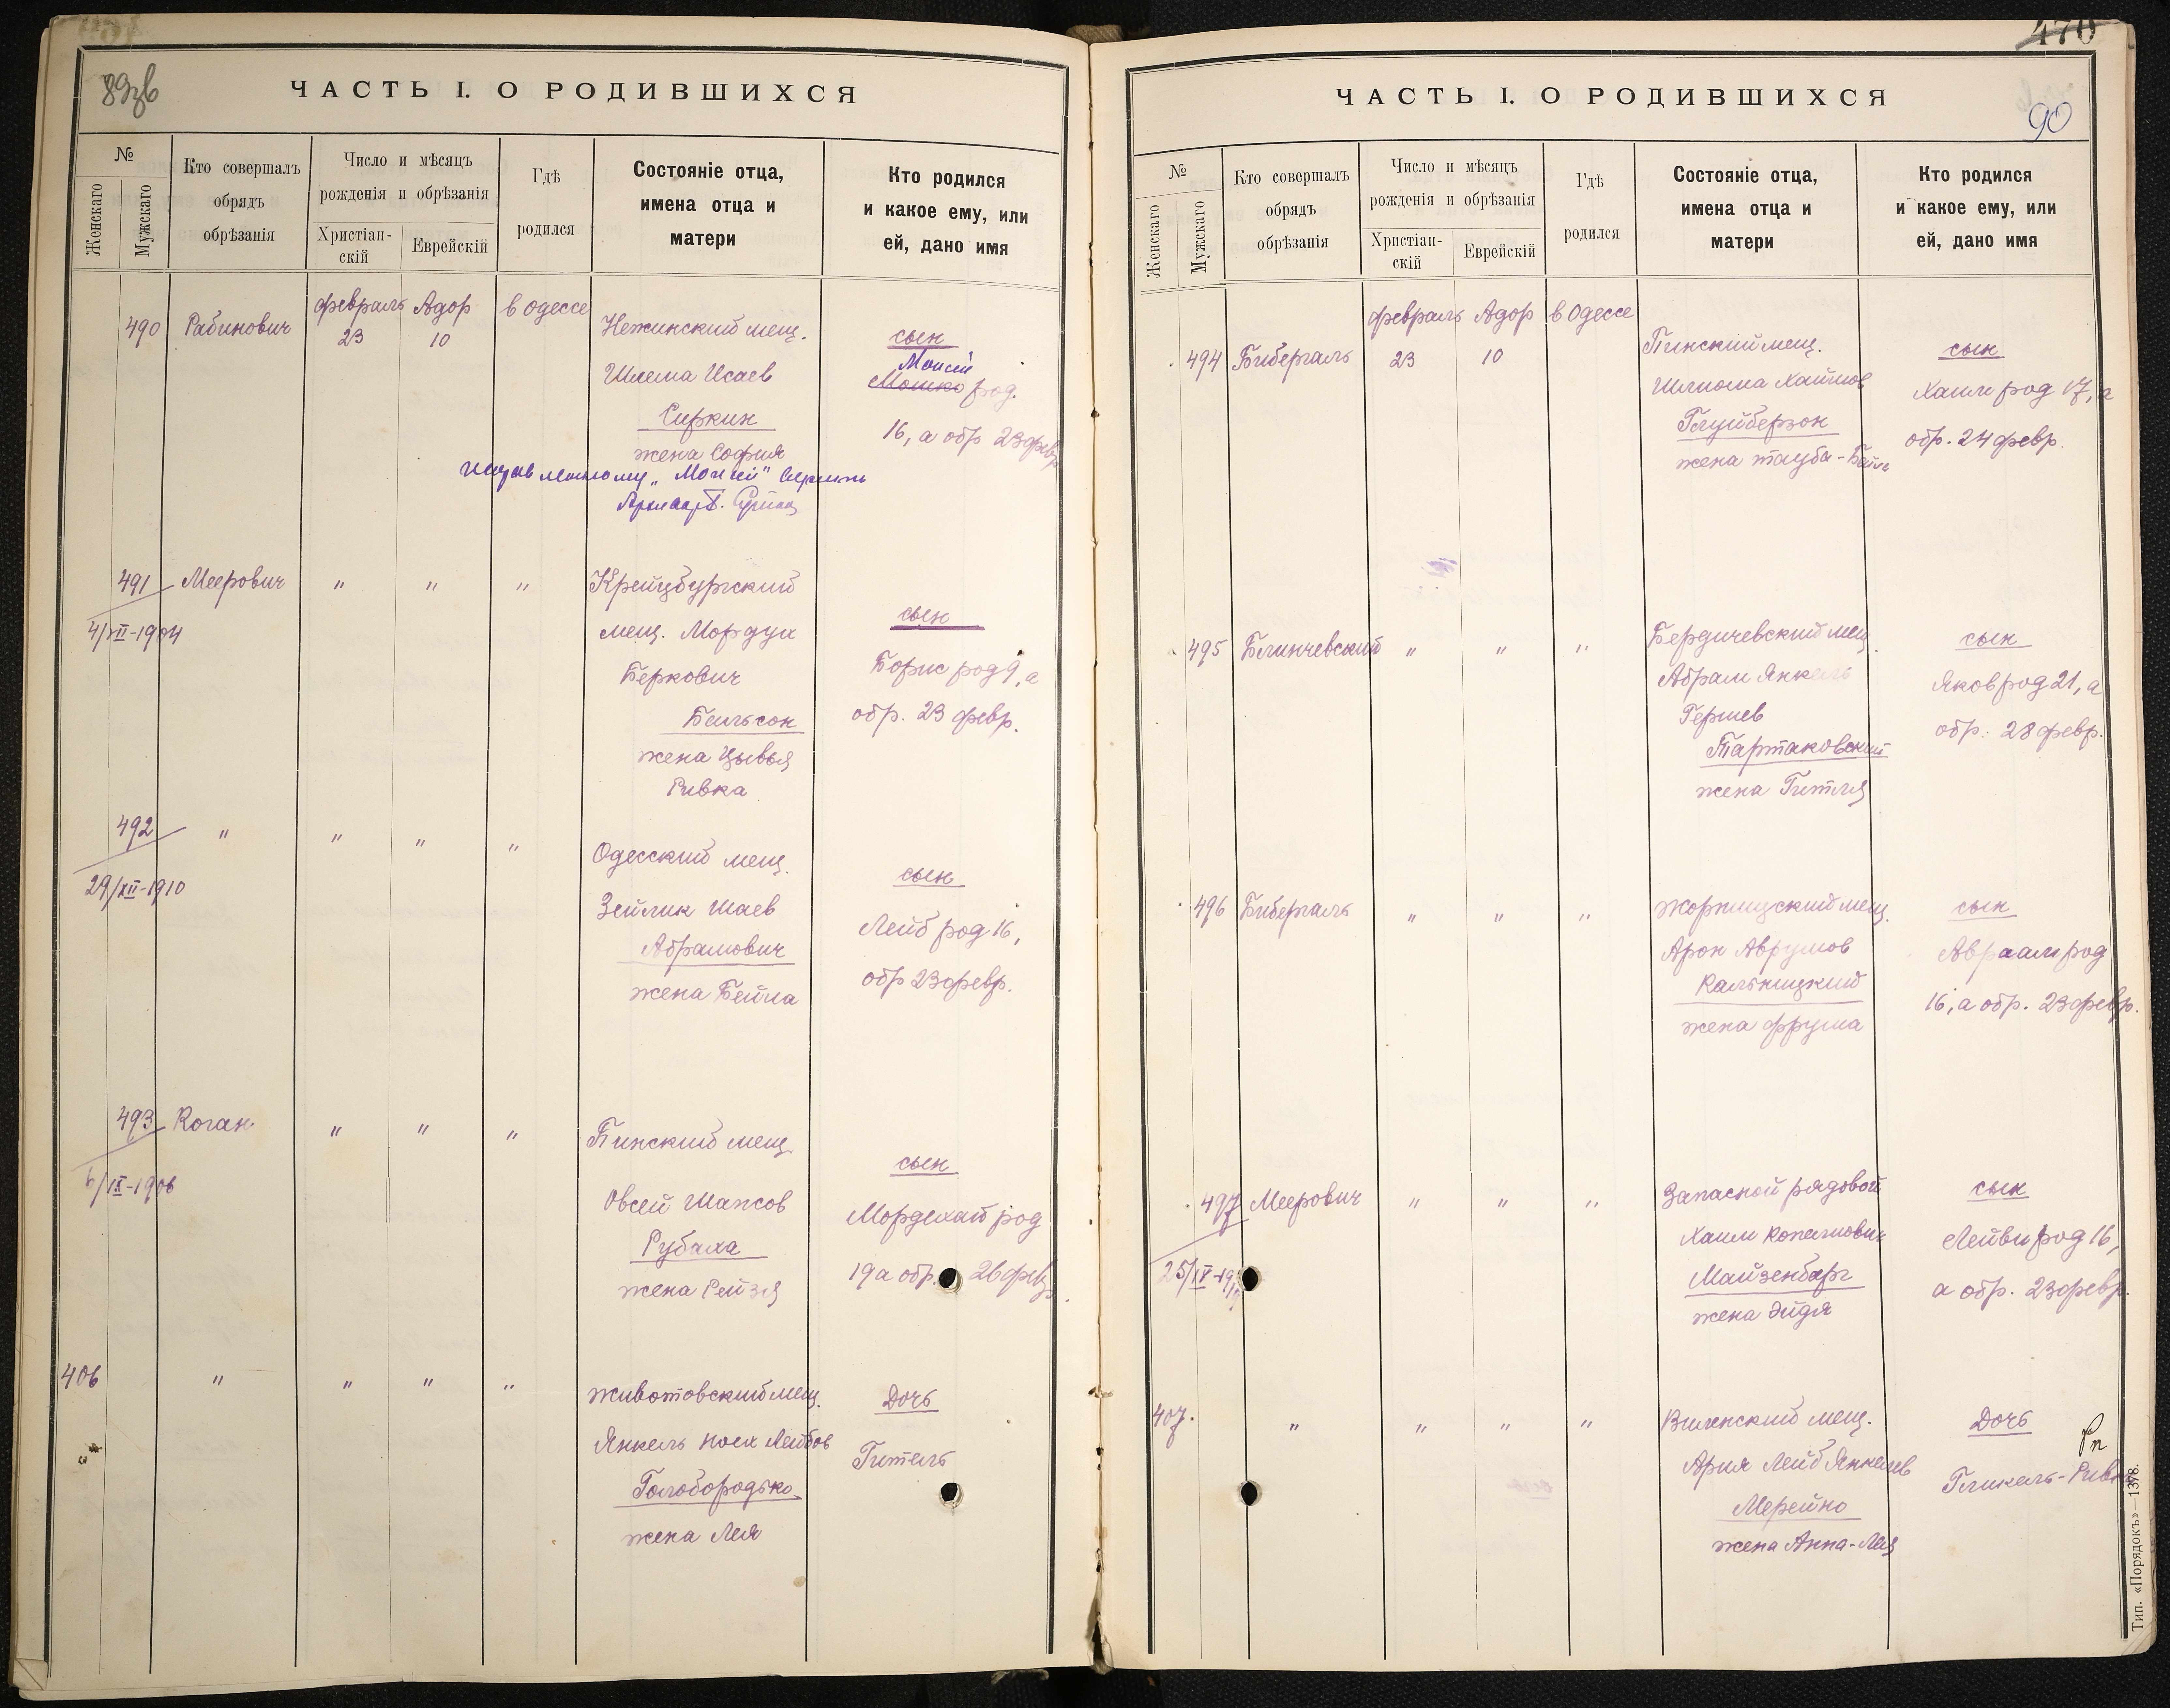 89зв
ЧАСТЬ I. О РОДИВШИХСЯ
№
Женскаго
Мужскаго
Кто совершалъ
обрядъ
обрѣзанія
Число и мѣсяцъ
рожденія и обрѣзанія
Христіан-
скій
Еврейскій
Гдѣ
родился
Состояніе отца,
имена отца и
матери
Кто родился
и какое ему, или
ей, дано имя
490 Рабинович
февраль Адор в Одессе
23 10
Нежинский мещ.
Шлема Исаев
Сиркин
жена София
сын
Моисей
Мошко род.
16, а обр 23 февр
"Моисей"
491 Меерович " " "
4/XII-1904
Крейцбургский
мещ. Мордух
Беркович
Бельсон
жена Цывья
Ривка
сын
Борис род 9, а
обр. 23 февр.
492 " " " "
29/XII-1910
Одесский мещ.
Зейлик Шаев
Абрамович
жена Бейла
сын
Лейб род 16,
обр 23 февр.
493 Коган " " "
6/IX-1906
Пинский мещ
Овсей Шапсов
Рубаха
жена Рейзя
сын
Мордехай род
19 а обр. 26 февр.
406 " " " "
Животовский мещ.
Янкель Нося Лейбов
Голобородько
жена Лея
Дочь
Гитель
470
90
ЧАСТЬ I. О РОДИВШИХСЯ
№
Женскаго
Мужскаго
Кто совершалъ
обрядъ
обрѣзанія
Число и мѣсяцъ
рожденія и обрѣзанія
Христіан-
скій
Еврейскій
Гдѣ
родился
Состояніе отца,
имена отца и
матери
Кто родился
и какое ему, или
ей, дано имя
февраль Адор в Одессе
494 Бибергаль 23 10
Пинский мещ.
Шлиома Хаимов
Глуйберзон
жена Тауба-Бейль
сын
Хаим род 17, а
обр. 24 февр.
495 Блинчевский " " "
Бердичевский мещ.
Абрам Янкель
Гершев
Тартаковский
жена Гитля
сын
Яков род 21, а
обр. 28 февр.
496 Бибергаль " " "
Жорнищский мещ.
Арон Аврумов
Кальницкий
жена Фрума
сын
Авраам род
16, а обр. 23 февр.
497 Меерович " " "
Запасной рядовой
Хаим Копелович
Майзенберг
жена Эйдя
сын
Лейви род 16,
а обр. 23 февр.
407. " " " "
Виленский мещ.
Ария Лейб Янкелев
Мерейно
жена Анна-Лея
Дочь
Гликель-Ривка
Тип. «Порядокъ»—1378.